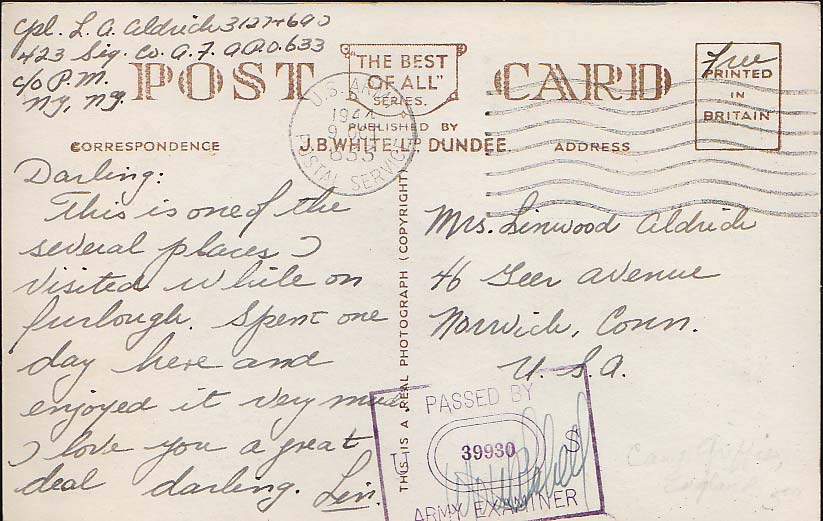 Cpl. L. A. Aldrich 31274690
423 Sig. Co. A.F. A.P.O. 633
c/o P.M.
NY, NY.
POST CARD
"THE BEST
OF ALL"
SERIES.
PUBLISHED BY
J.B. WHITE LD DUNDEE.
CORRESPONDENCE
ADDRESS
Free
PRINTED
IN
BRITAIN
U.S. ARMY
1944
9
POSTAL SERVICE
Darling:
This is one of the
several places I
visited while on
furlough. Spent one
day here and
enjoyed it very much
I love you a great
deal darling. Lin.
THIS IS A REAL PHOTOGRAPH (COPYRIGHT)
Mrs. Linwood Aldrich
46 Geer Avenue
Norwich, Conn.
U. S. A.
PASSED BY
U S
39930
ARMY EXAMINER
Camp Griffiss,
England